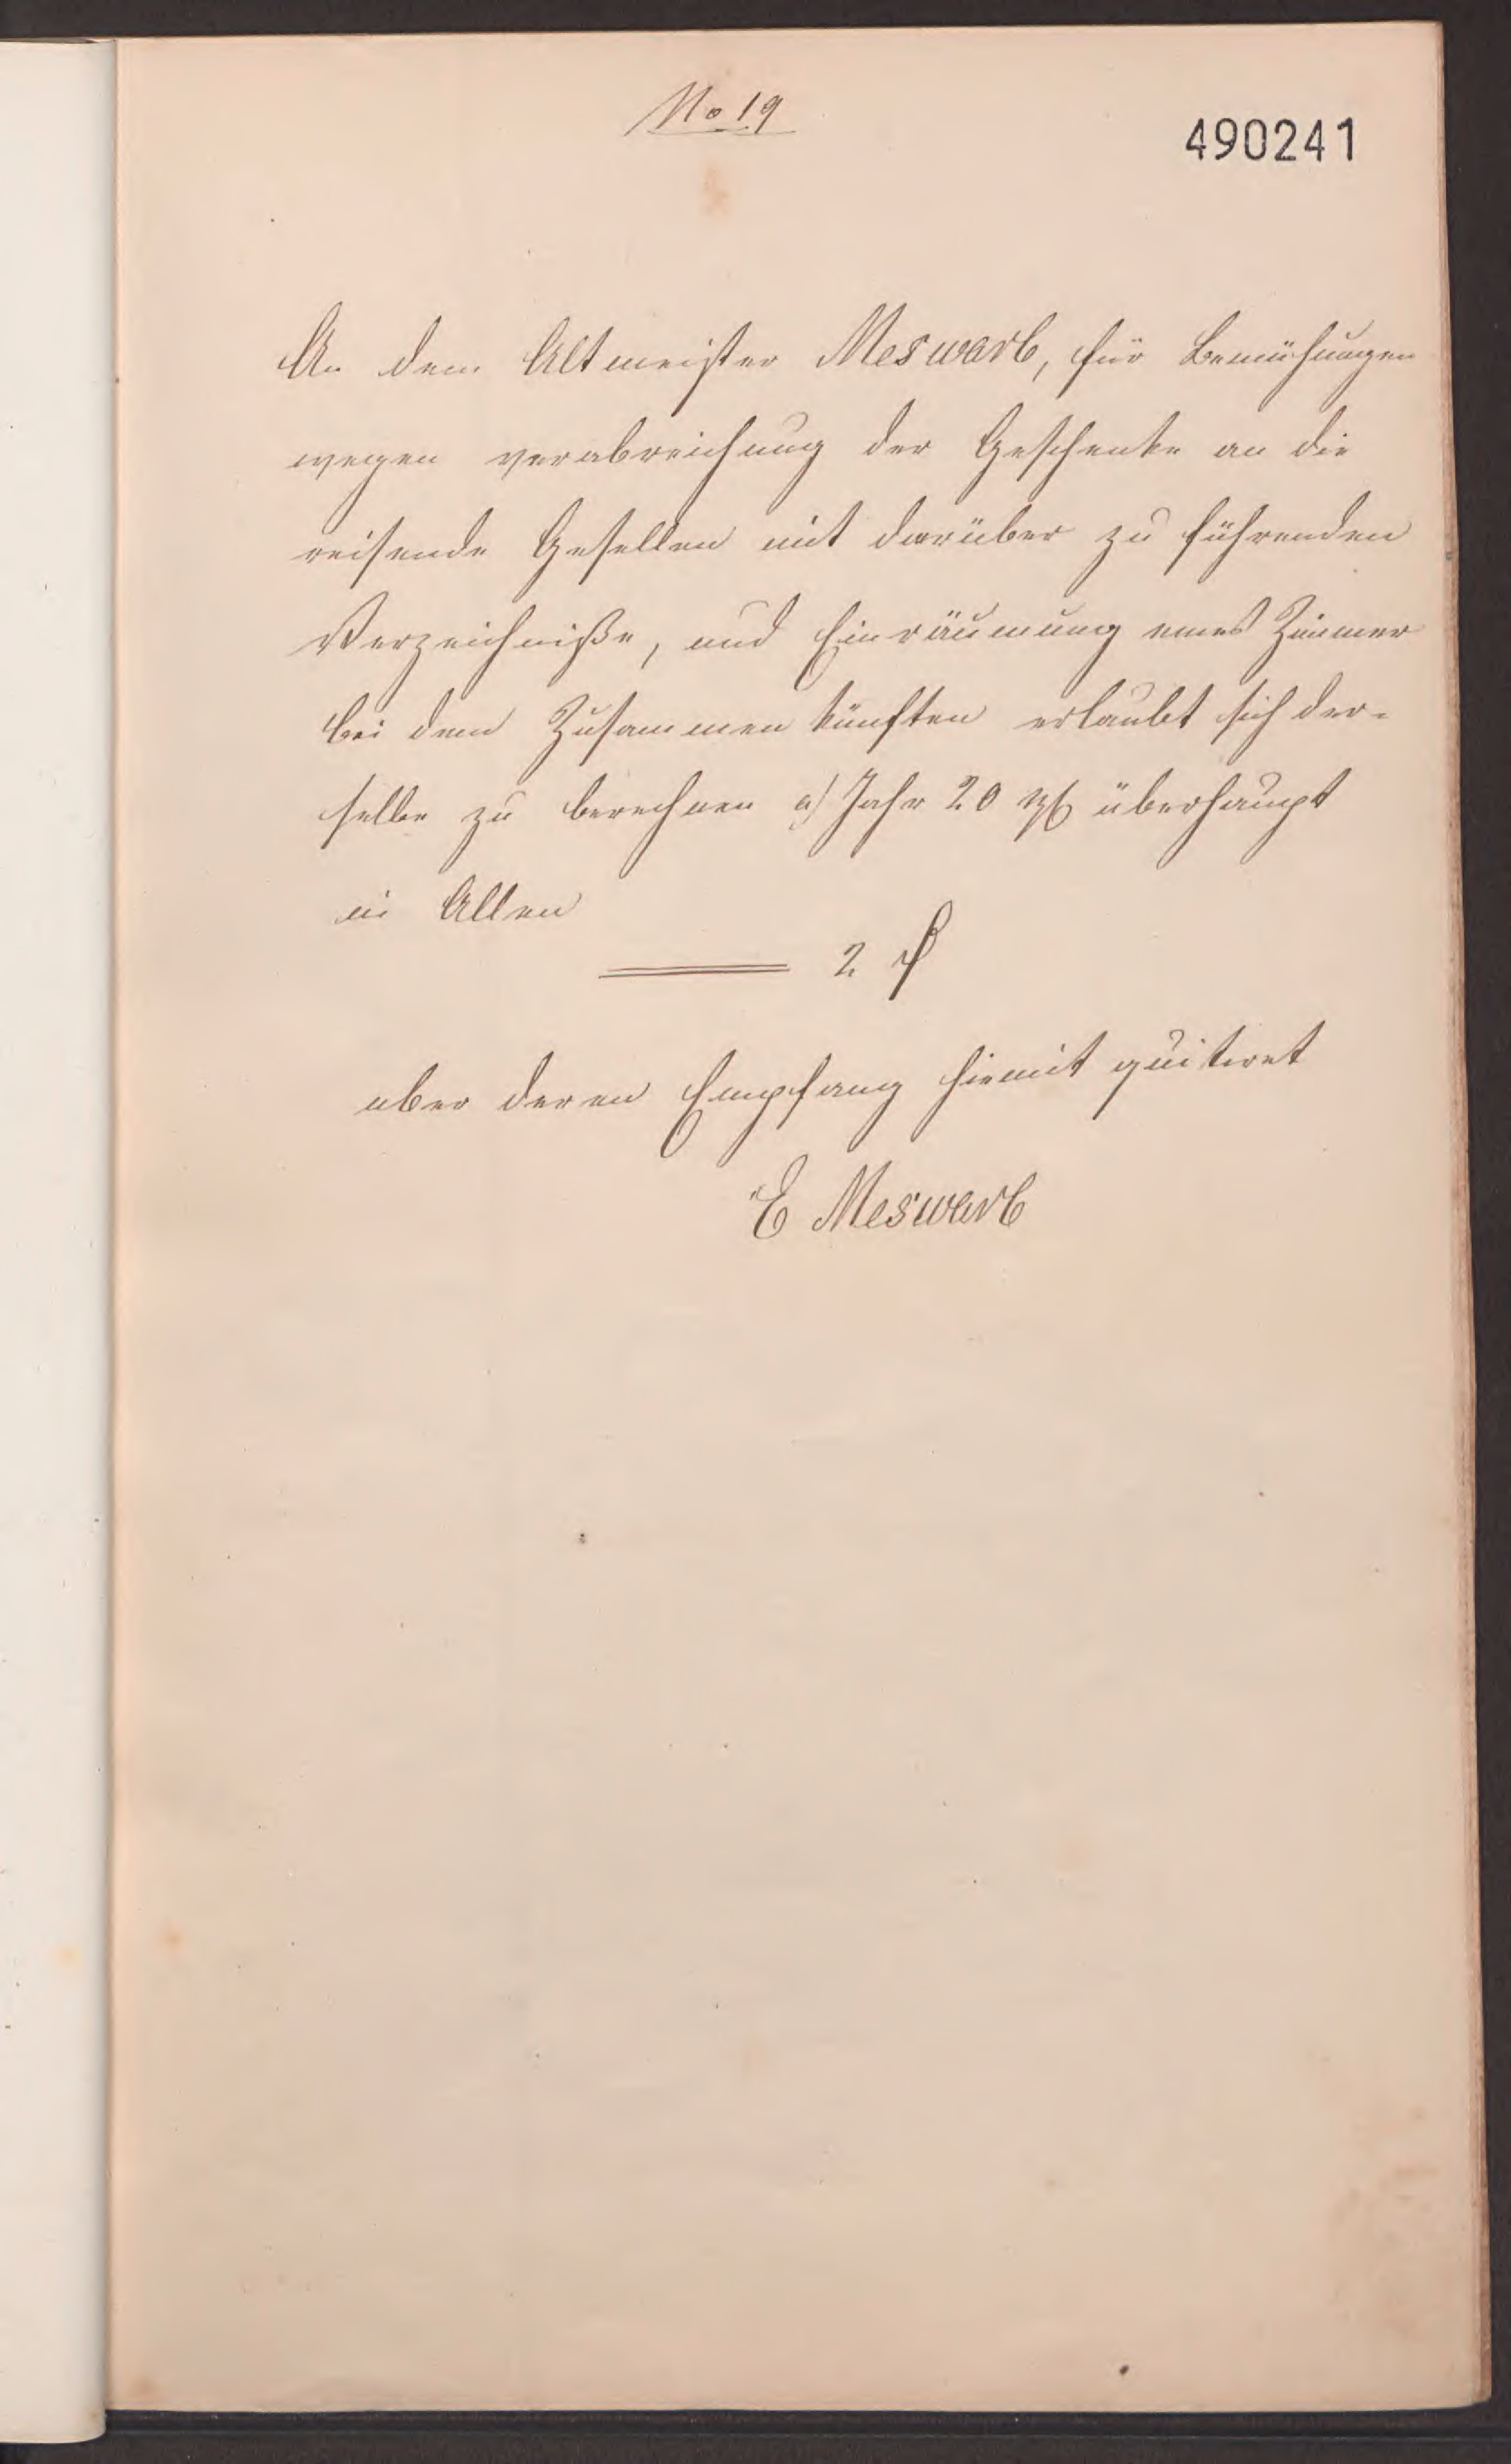 No 19
490241
An dem Altmeister Meswarb, für Bemühungen
wegen verabreichung der Geschenke an die
reisende Gesellen mit darüber zu führenden
Verzeichniße, und Einräumung eines Zimmer
bei dem Zusammen künften erlaubt sich der-
selbe zu berechnen a) Jahr 20 überhaupt
in Allen
2
uber deren Empfang hiemit quitiret
E Meswarb